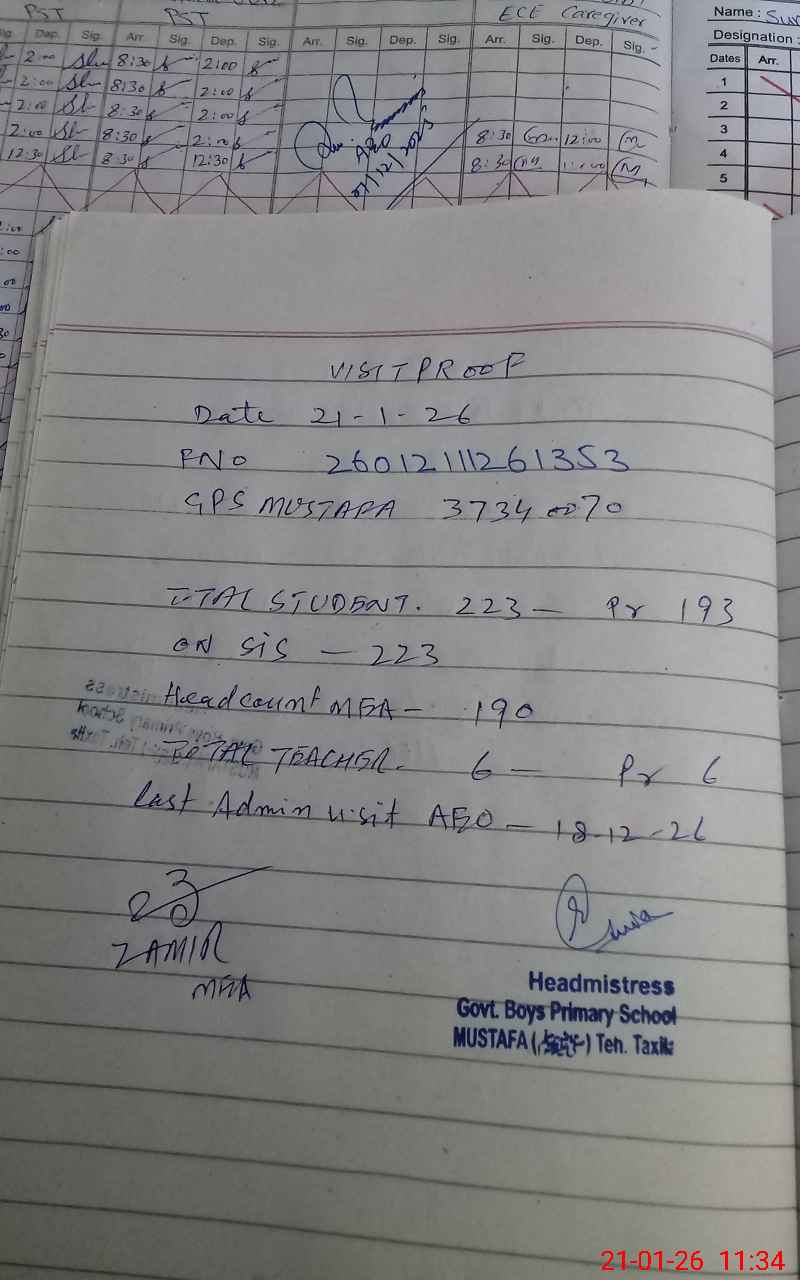 PST
PST
ECE Caregiver
Dep. Sig. Arr. Sig. Dep. Sig. Arr. Sig. Dep. Sig. Arr. Sig. Dep. Sig.
2:00 8:30 2:00
2:00 8:30 2:00
2:00 8:30 2:00
2:00 8:30 2:00 8:30 12:00
12:30 8:30 12:30 8:30
AEO
Name :
Designation :
Dates Arr.
1
2
3
4
5
VISIT PROOF
Date 21-1-26
RNO 26012111261353
GPS MUSTAFA 37340070
TOTAL STUDENT. 223 — Pr 193
ON SIS — 223
Headcount MEA — 190
TOTAL TEACHER. 6 — Pr 6
Last Admin visit AEO — 18-12-26
ZAMIR
MEA
Headmistress
Govt. Boys Primary School
MUSTAFA ( ) Teh. Taxila
21-01-26 11:34